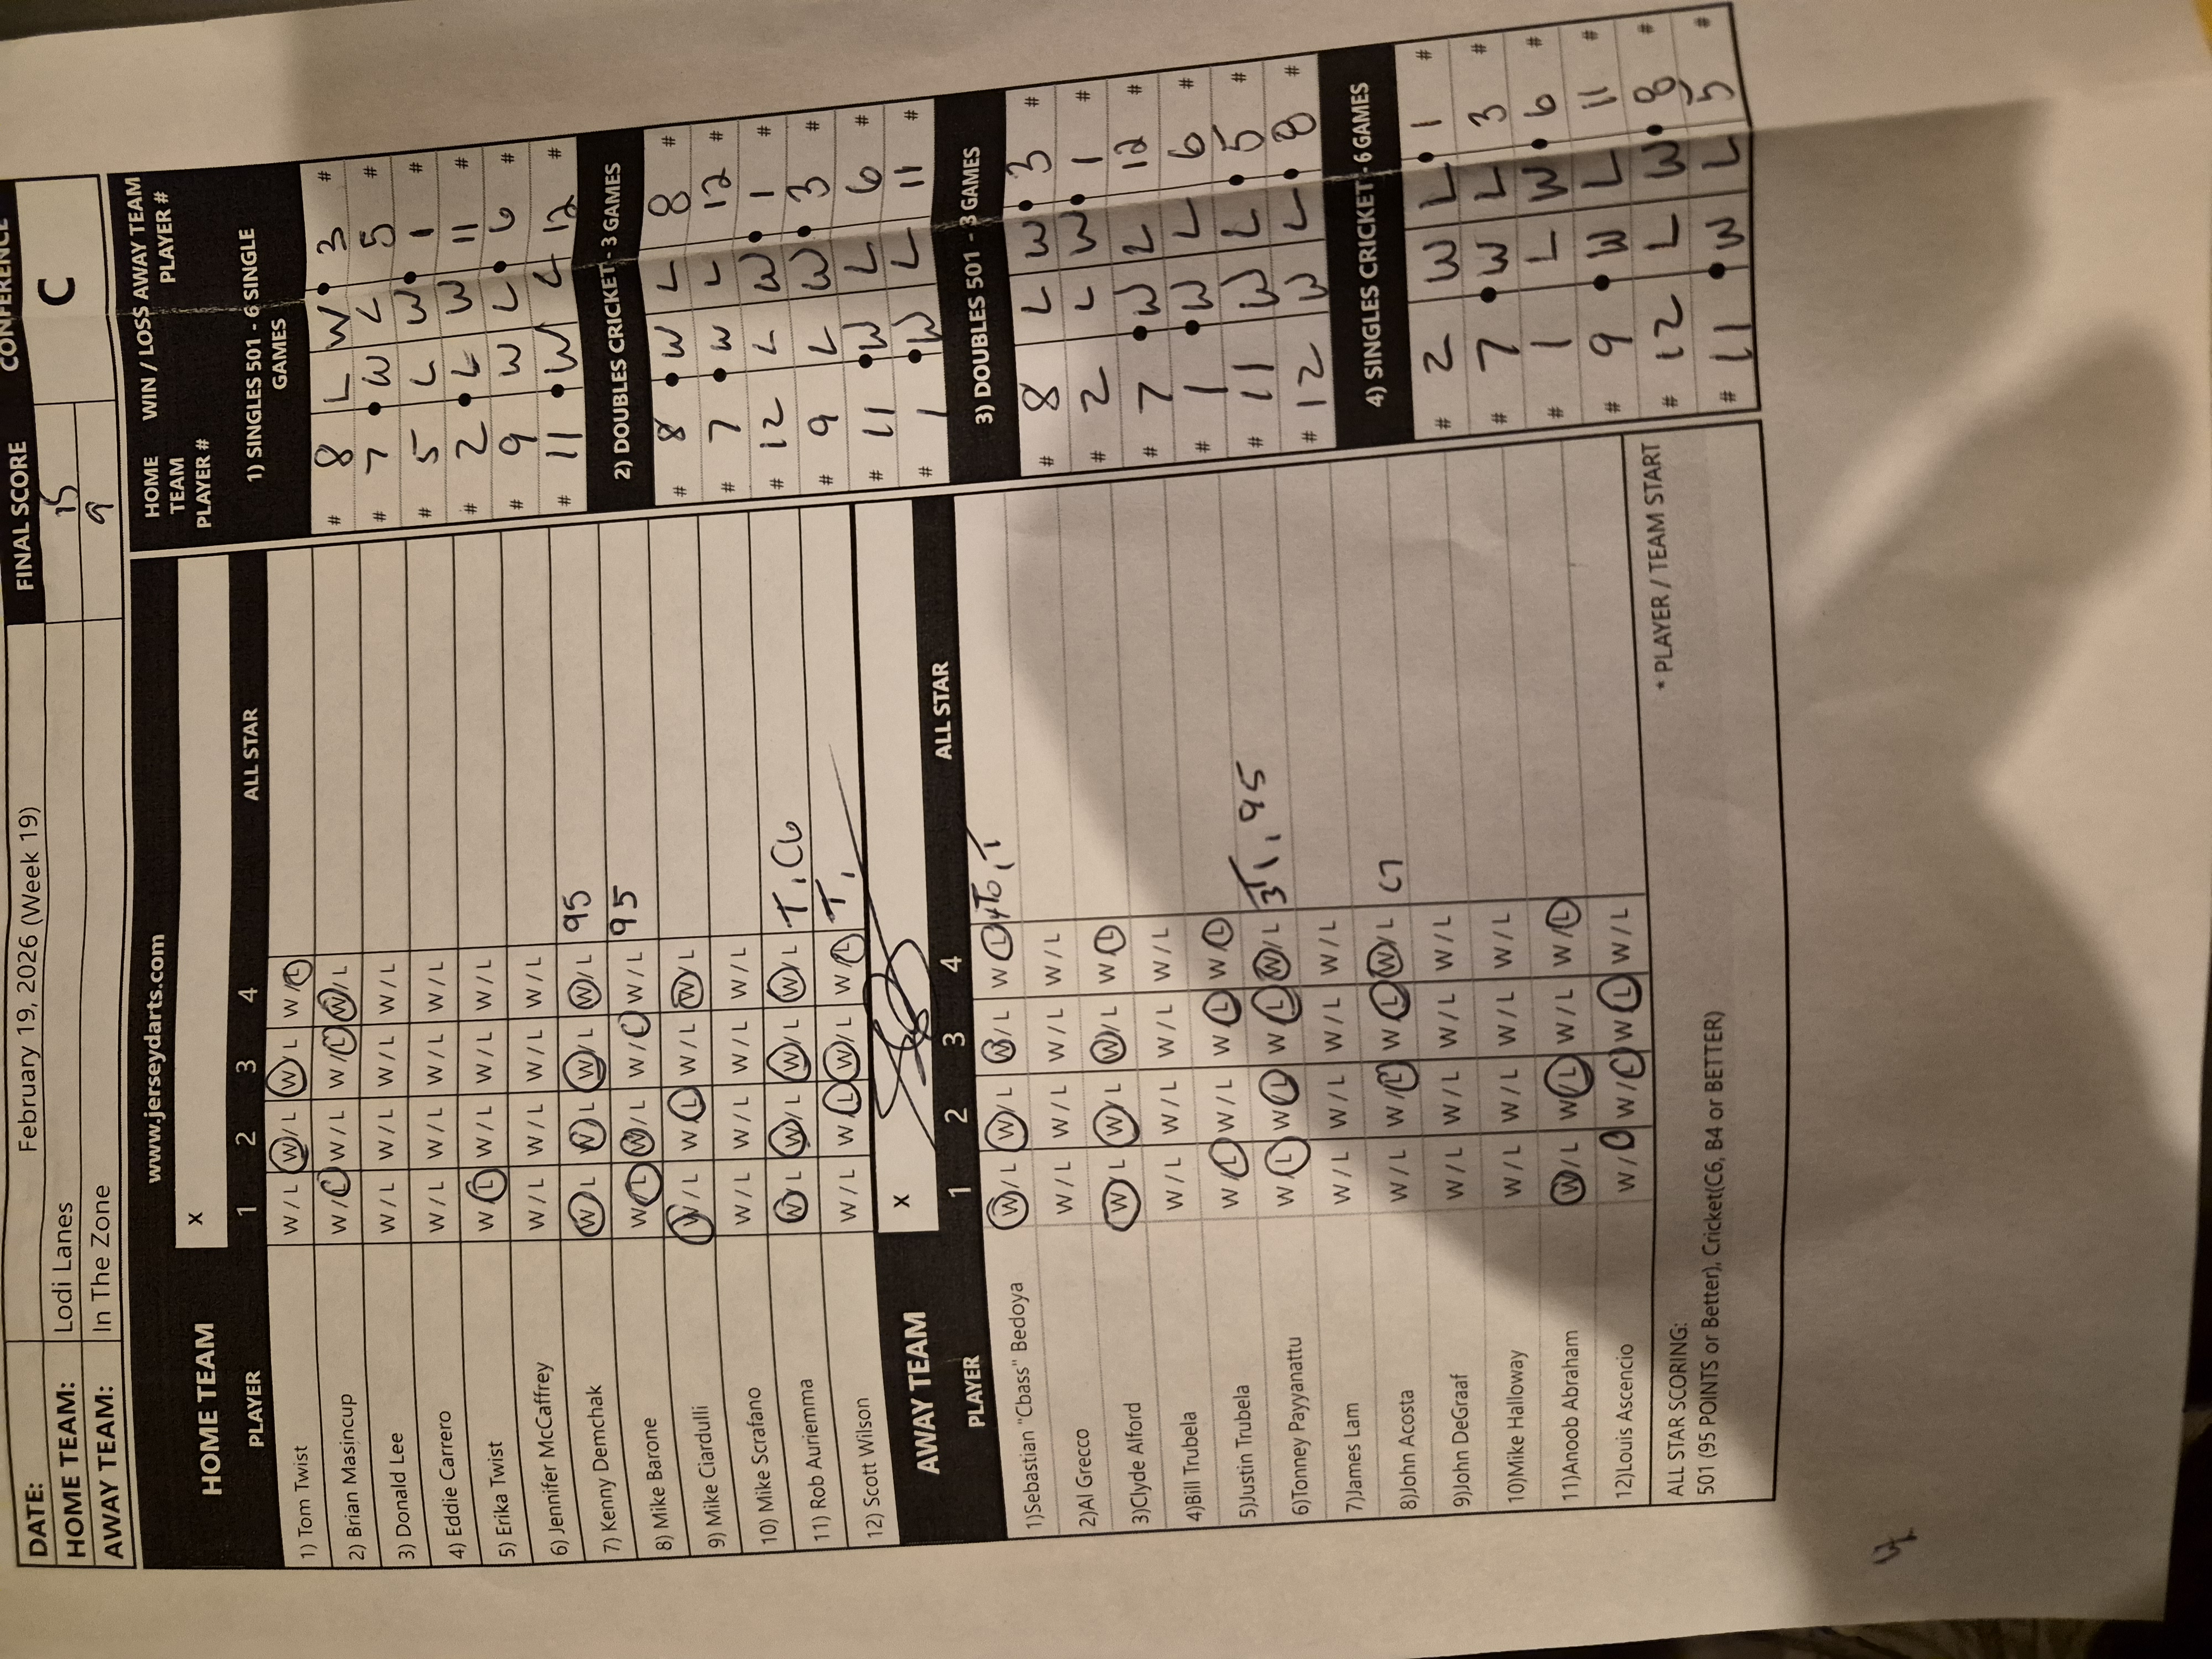 CONFERENCE
C
FINAL SCORE
15
9
DATE: February 19, 2026 (Week 19)
HOME TEAM: Lodi Lanes
AWAY TEAM: In The Zone
www.jerseydarts.com
HOME TEAM
X
PLAYER 1 2 3 4 ALL STAR
1) Tom Twist W / L W / L W / L W / L
2) Brian Masincup W / L W / L W / L W / L
3) Donald Lee W / L W / L W / L W / L
4) Eddie Carrero W / L W / L W / L W / L
5) Erika Twist W / L W / L W / L W / L
6) Jennifer McCaffrey W / L W / L W / L W / L
7) Kenny Demchak W / L W / L W / L W / L 95
8) Mike Barone W / L W / L W / L W / L 95
9) Mike Ciardulli W / L W / L W / L W / L
10) Mike Scrafano W / L W / L W / L W / L
11) Rob Auriemma W / L W / L W / L W / L T, C6
12) Scott Wilson W / L W / L W / L W / L T,
AWAY TEAM
X
PLAYER 1 2 3 4 ALL STAR
1)Sebastian "Cbass" Bedoya W / L W / L W / L W / L
2)Al Grecco W / L W / L W / L W / L
3)Clyde Alford W / L W / L W / L W / L
4)Bill Trubela W / L W / L W / L W / L
5)Justin Trubela W / L W / L W / L W / L
6)Tonney Payyanattu W / L W / L W / L W / L 3T, 95
7)James Lam W / L W / L W / L W / L
8)John Acosta W / L W / L W / L W / L C7
9)John DeGraaf W / L W / L W / L W / L
10)Mike Halloway W / L W / L W / L W / L
11)Anoob Abraham W / L W / L W / L W / L
12)Louis Ascencio W / L W / L W / L W / L
ALL STAR SCORING:
501 (95 POINTS or Better), Cricket(C6, B4 or BETTER)
* PLAYER / TEAM START
HOME TEAM PLAYER # WIN / LOSS AWAY TEAM PLAYER #
1) SINGLES 501 - 6 SINGLE GAMES
# 8 L W 3 #
# 7 W L 5 #
# 5 L W 1 #
# 2 L W 11 #
# 9 W L 6 #
# 11 W L 12 #
2) DOUBLES CRICKET - 3 GAMES
# 8 W L 8 #
# 7 W L 12 #
# 12 L W 1 #
# 9 L W 3 #
# 11 W L 6 #
# 1 W L 11 #
3) DOUBLES 501 - 3 GAMES
# 8 L W 3 #
# 2 L W 1 #
# 7 W L 12 #
# 1 W L 6 #
# 11 W L 5 #
# 12 W L 8 #
4) SINGLES CRICKET - 6 GAMES
# 2 W L 1 #
# 7 W L 3 #
# 1 L W 6 #
# 9 W L 11 #
# 12 L W 8 #
# 11 W L 5 #